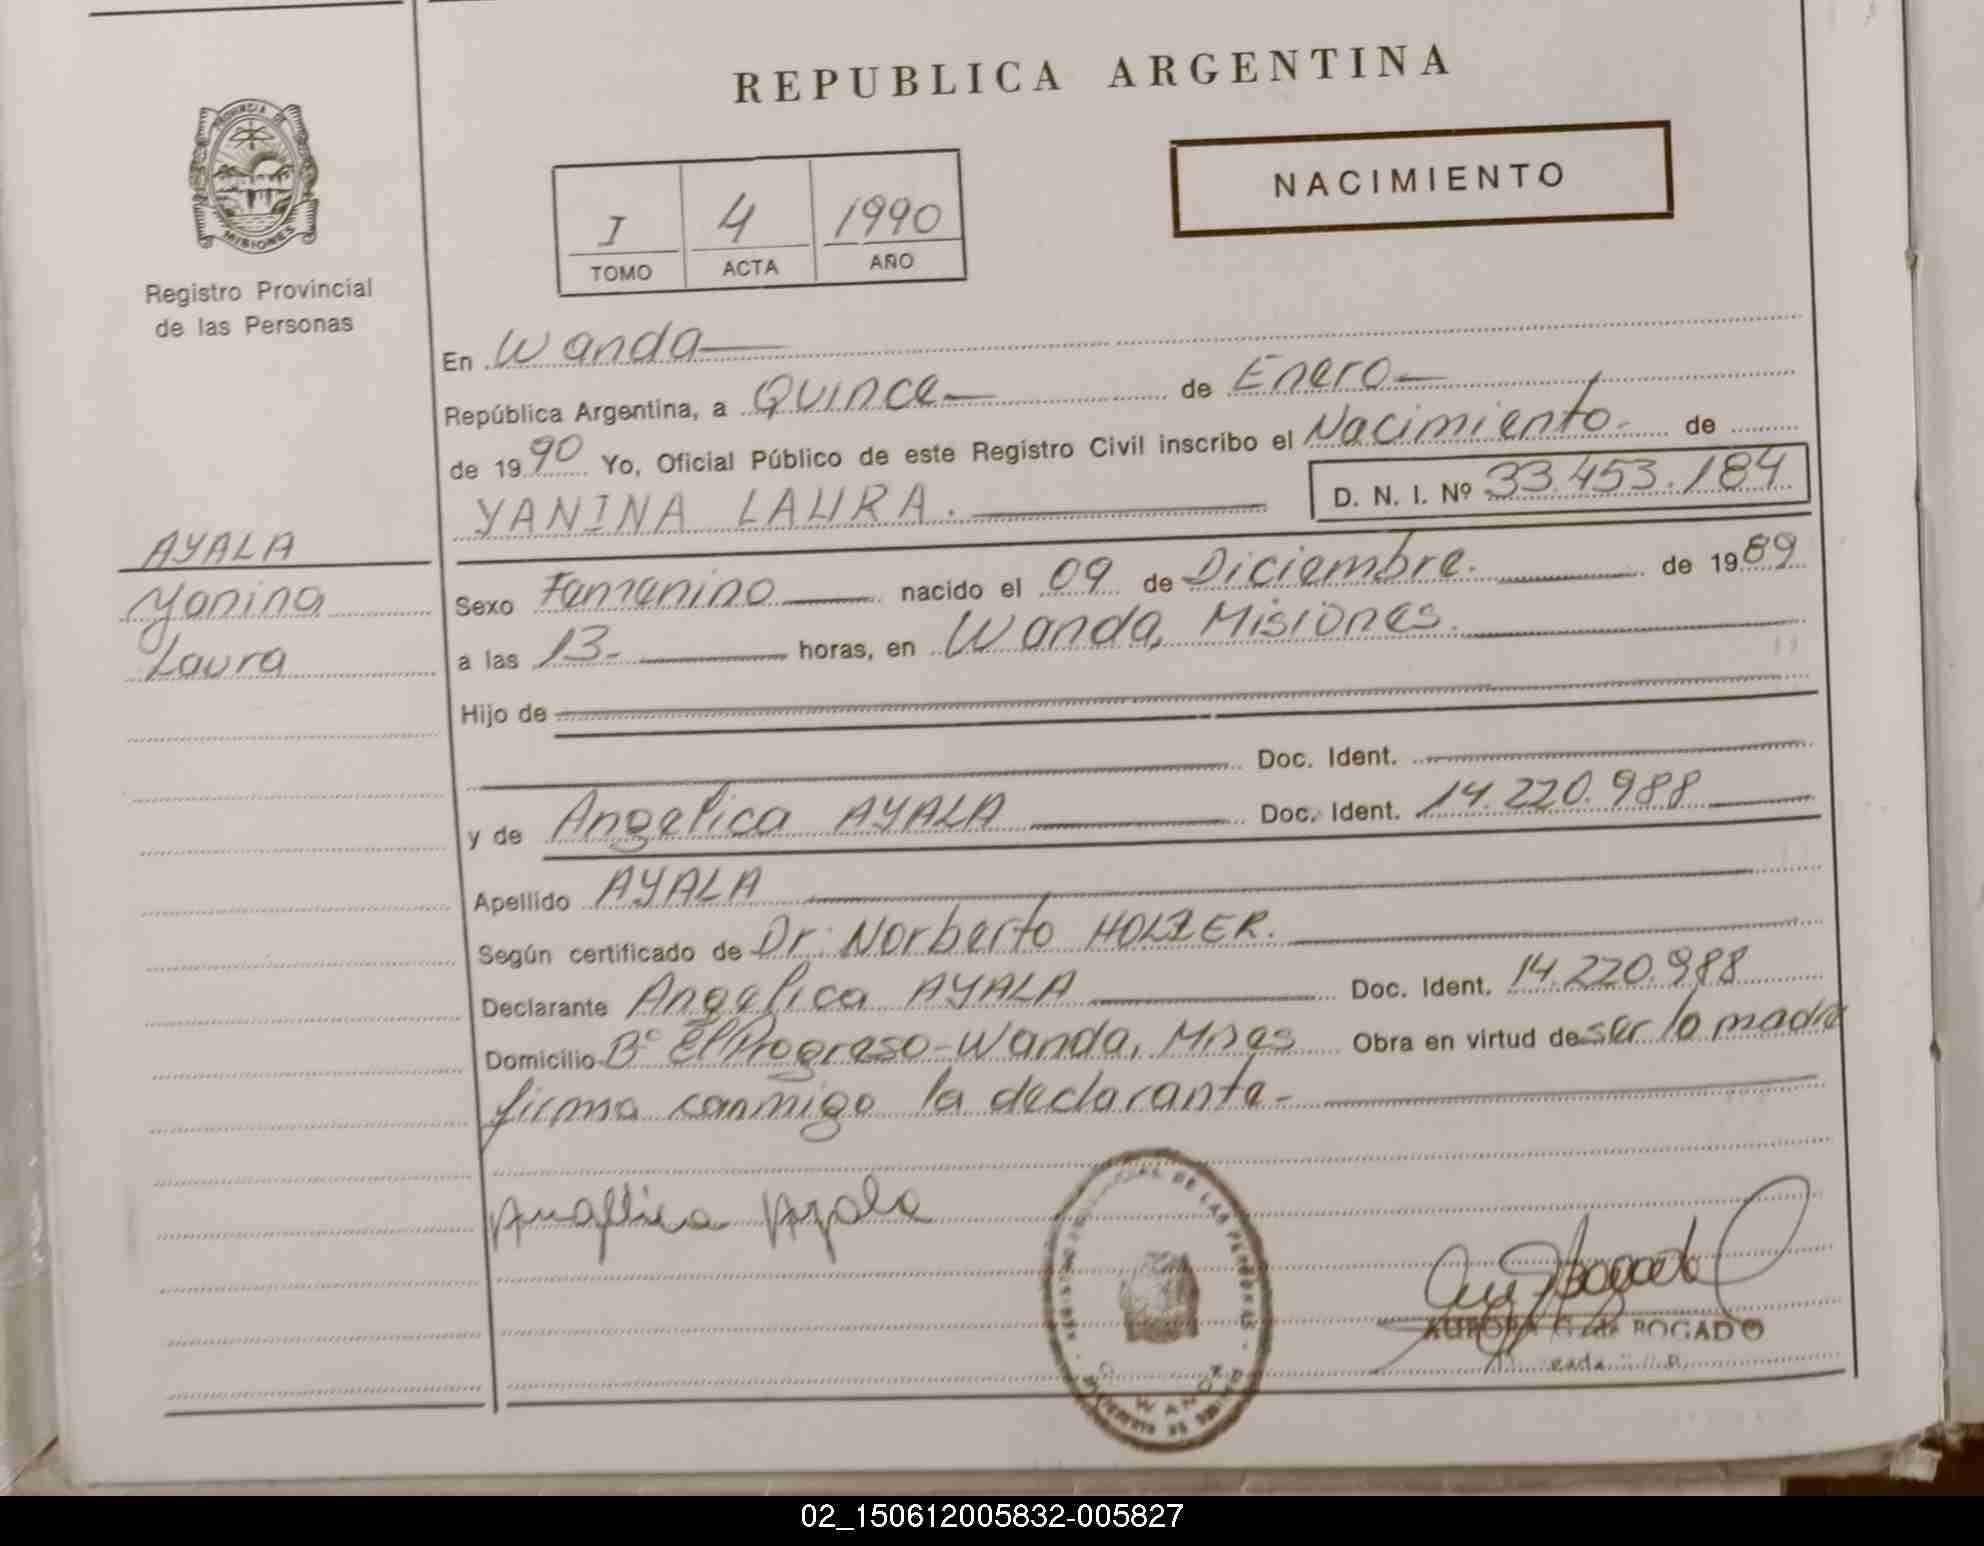 REPUBLICA ARGENTINA
PROVINCIA DE
MISIONES
Registro Provincial
de las Personas
NACIMIENTO
I 4 1990
TOMO ACTA AÑO
En Wanda
República Argentina, a Quince de Enero
de 1990 Yo, Oficial Público de este Registro Civil inscribo el Nacimiento de
YANINA LAURA. D. N. I. Nº 33.453.184
AYALA
Yanina
Laura
Sexo Femenino nacido el 09 de Diciembre. de 1989
a las 13 horas, en Wanda, Misiones.
Hijo de
Doc. Ident.
y de Angelica AYALA Doc. Ident. 14.220.988
Apellido AYALA
Según certificado de Dr. Norberto HOLZER.
Declarante Angelica AYALA Doc. Ident. 14.220.988
Domicilio Bº El Progreso-Wanda, Mnes Obra en virtud de ser la madre
firma conmigo la declarante-
Angelica Ayala
DE LAS PERSONAS
WANDA
AURORA G. de BOGADO
02_150612005832-005827